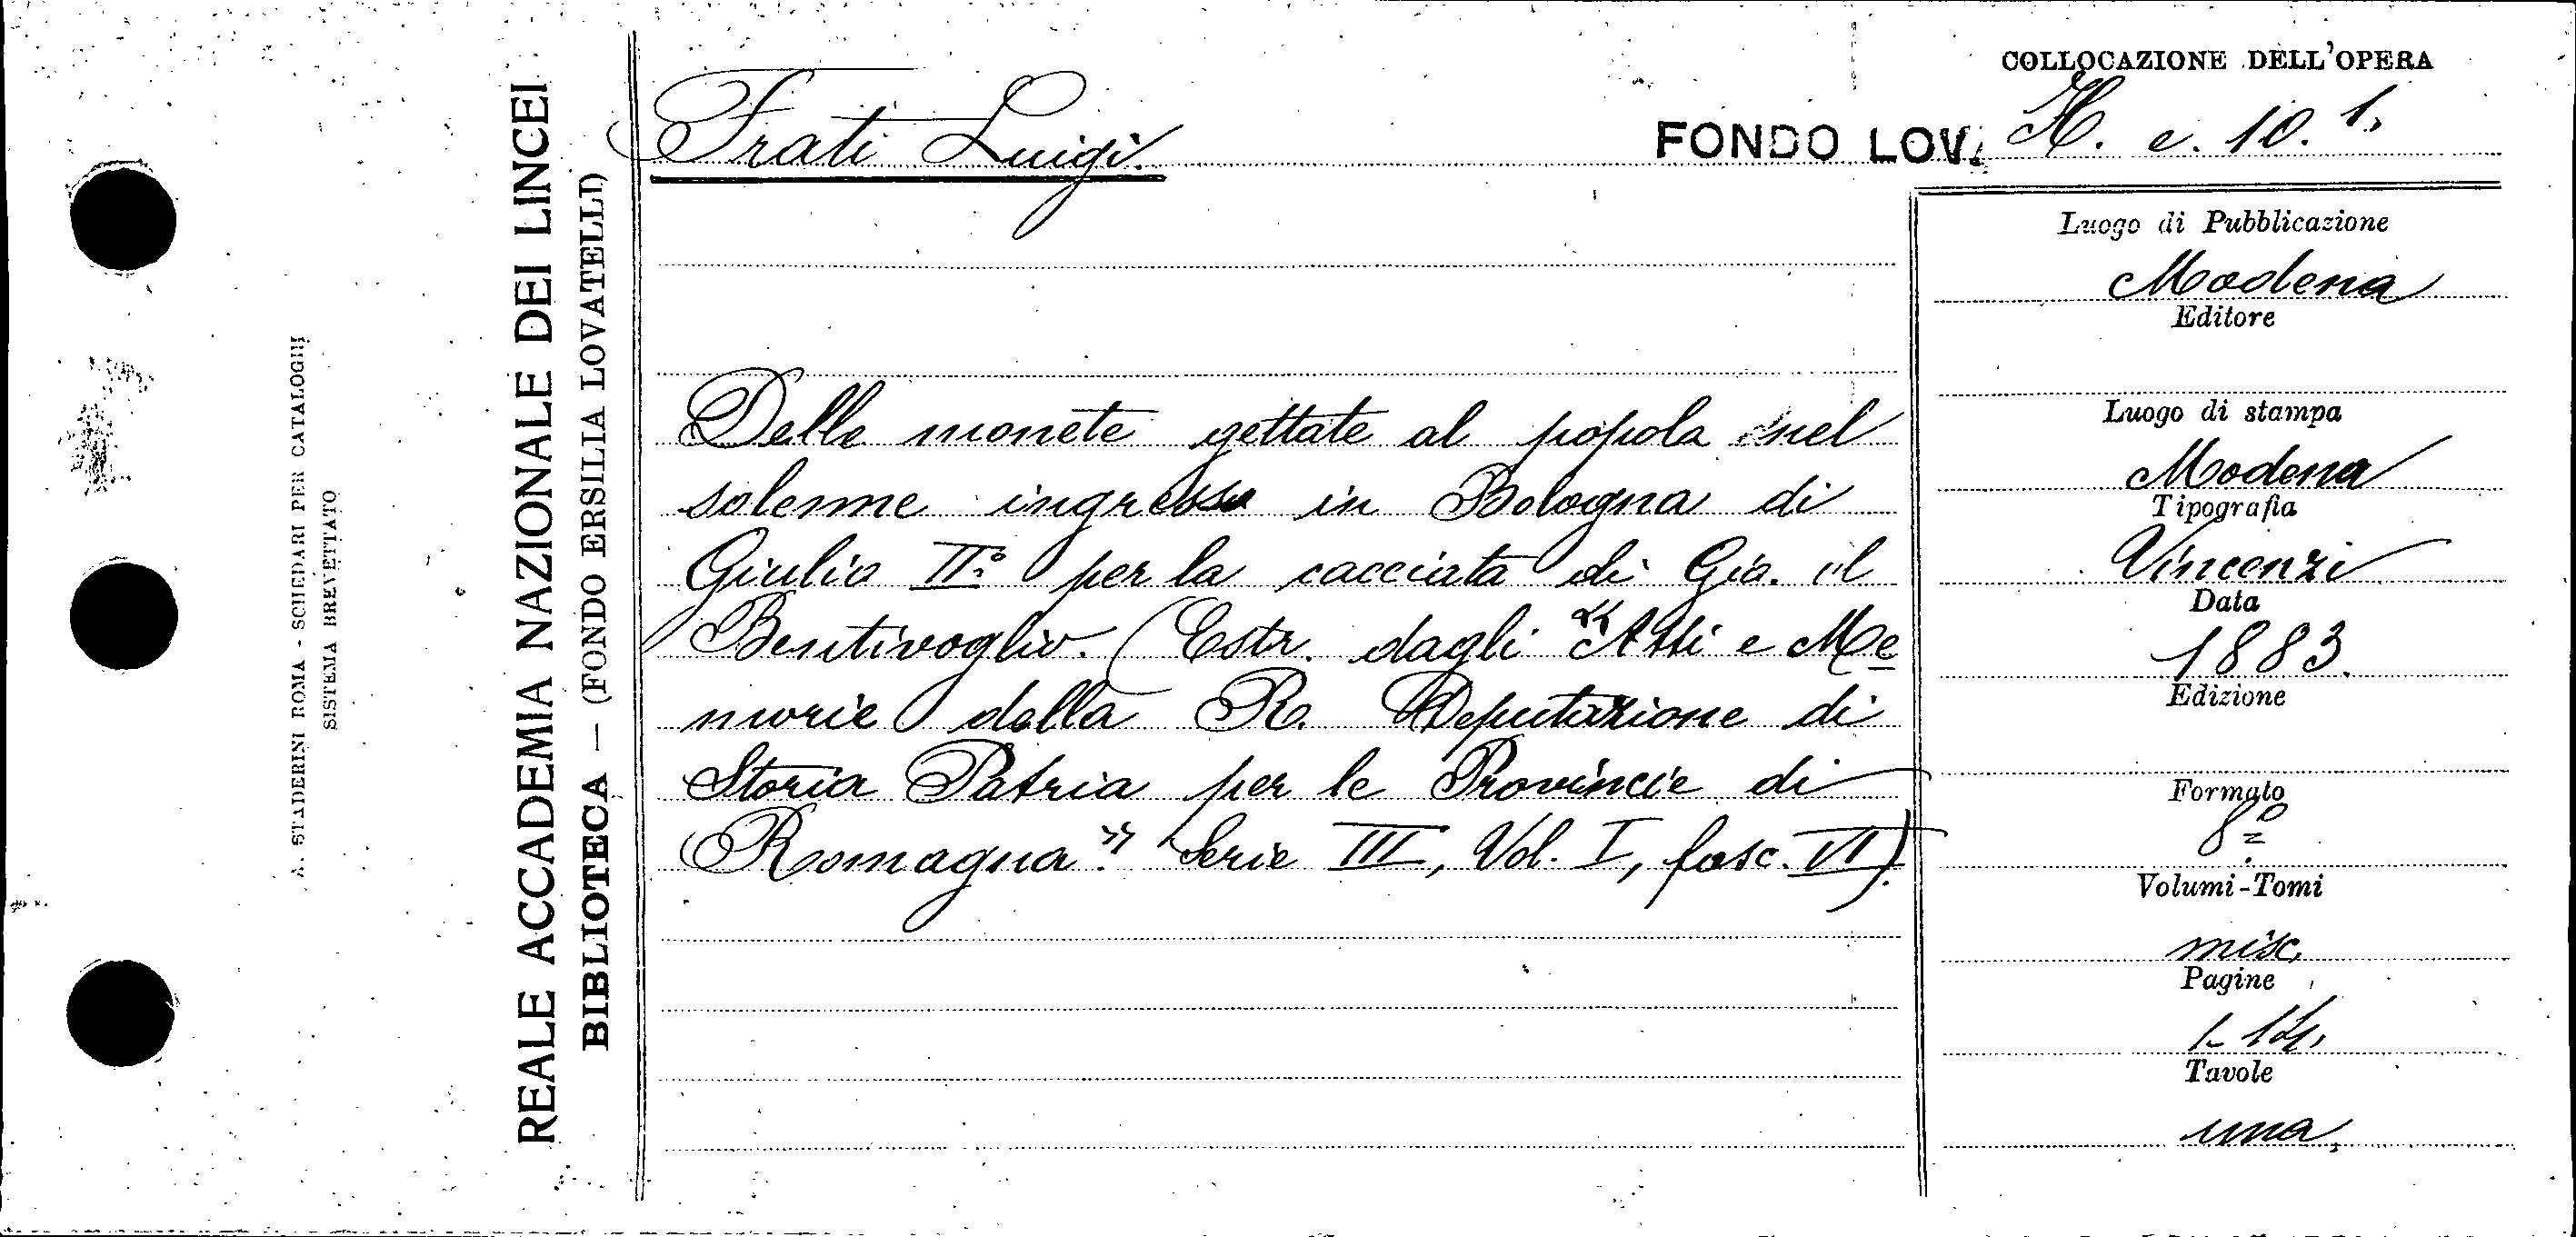 COLLOCAZIONE DELL'OPERA
Frati Luigi. FONDO LOV. H. e. 10. 1.
Delle monete gettate al popolo nel
solenne ingresso in Bologna di
Giulio II.º per la cacciata di Gio. il
Bentivoglio. (Estr. dagli "Atti e Me
morie della R. Deputazione di
Storia Patria per le Provincie di
Romagna". Serie III, Vol. I, fasc. VI).
Luogo di Pubblicazione
Modena
Editore
Luogo di stampa
Modena
Tipografia
Vincenzi
Data
1883.
Edizione
Formato
8º
Volumi-Tomi
misc.
Pagine
1-14.
Tavole
una.
REALE ACCADEMIA NAZIONALE DEI LINCEI
BIBLIOTECA — (FONDO ERSILIA LOVATELLI)
A. STADERINI ROMA - SCHEDARI PER CATALOGHI
SISTEMA BREVETTATO